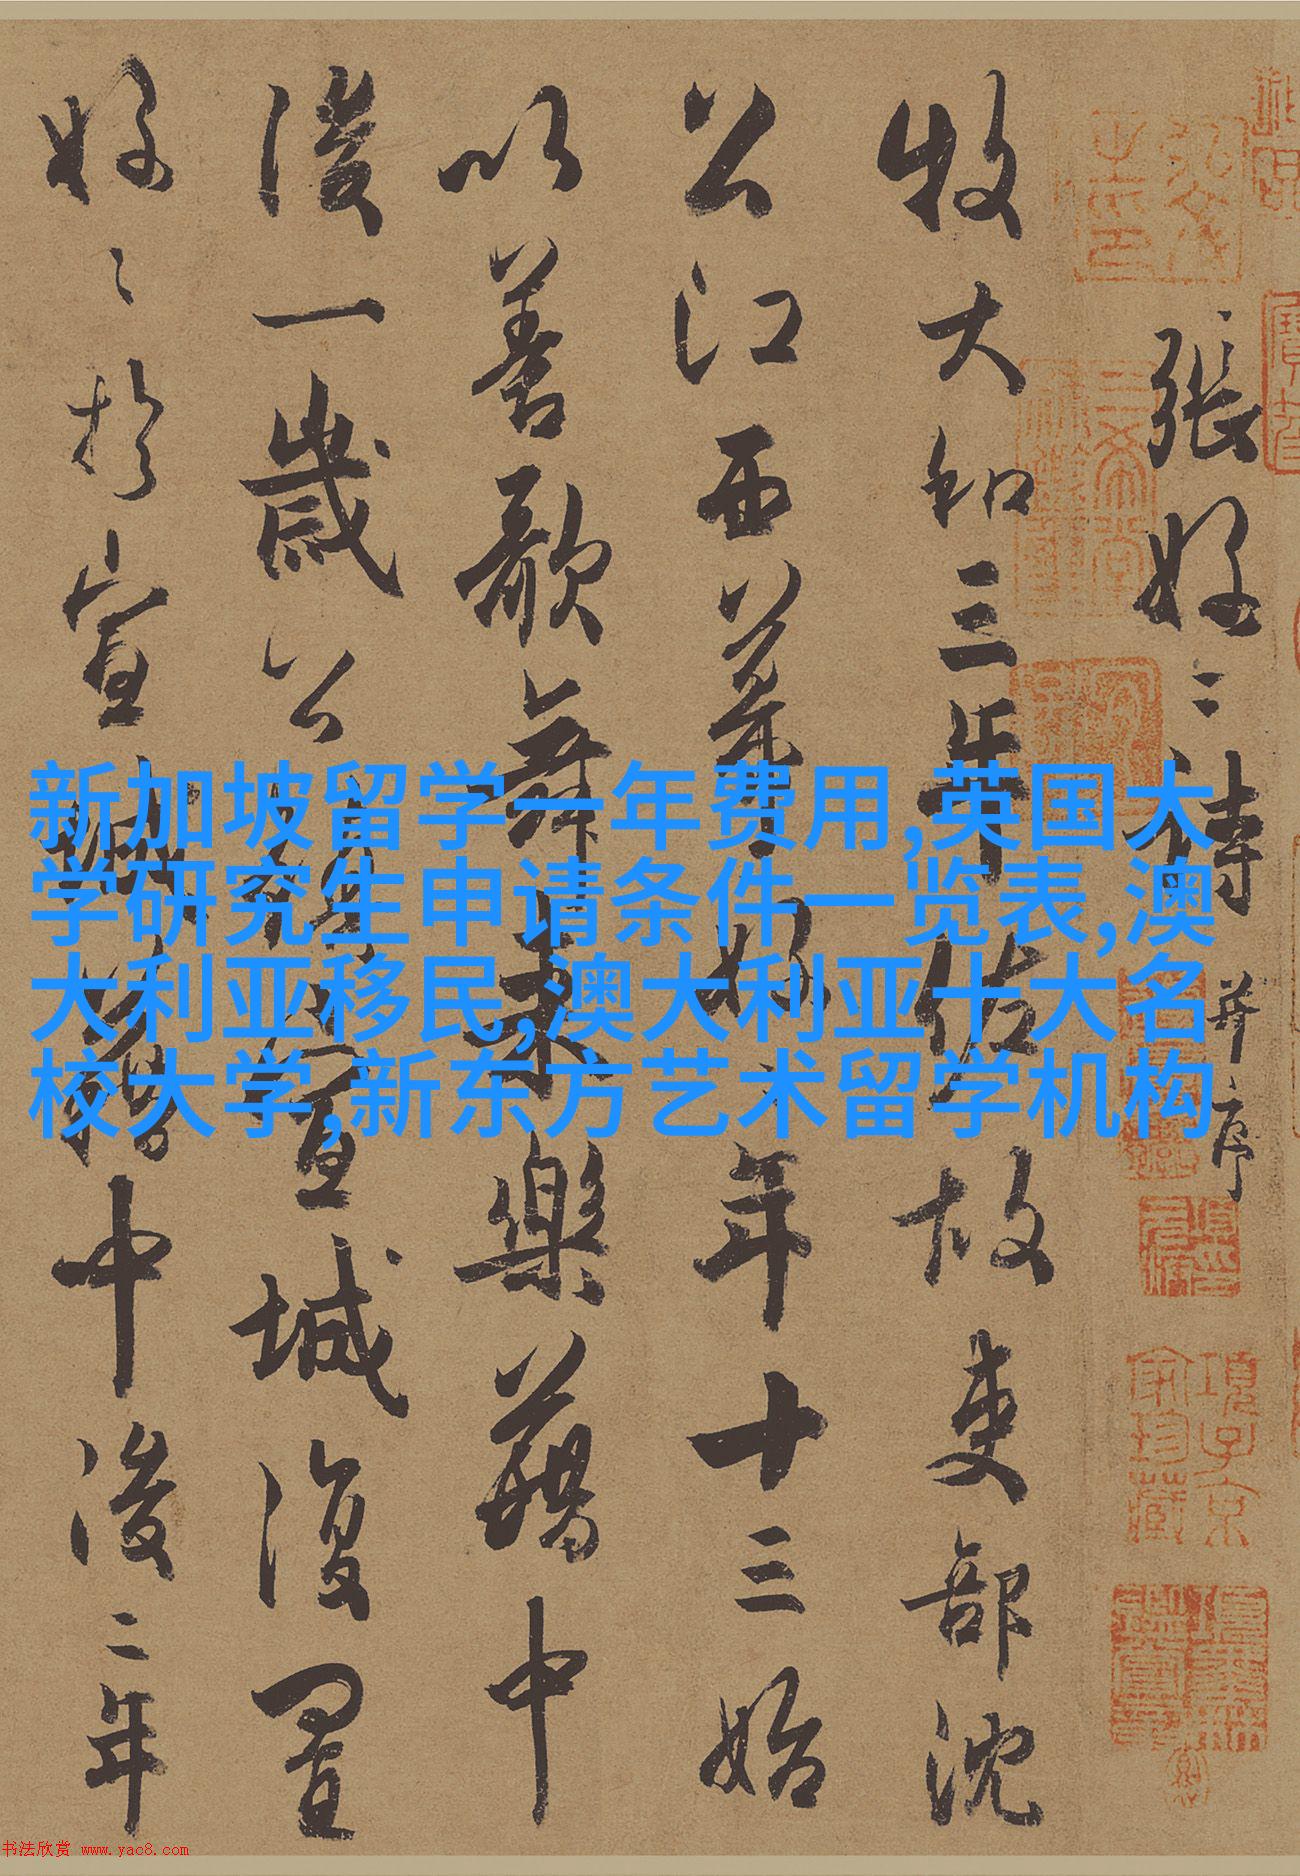 張好〻詩并序
牧大和三年佐故吏部沈
公江西幕好〻年十三始
以善歌舞来樂籍中
後一歲公鎮宣城復置
好〻於宣城籍中後二年
新加坡留学一年费用,英国大
学研究生申请条件一览表,澳
大利亚移民,澳大利亚十大名
校大学,新东方艺术留学机构
項子京
家珍藏
书法欣赏 www.yac8.com